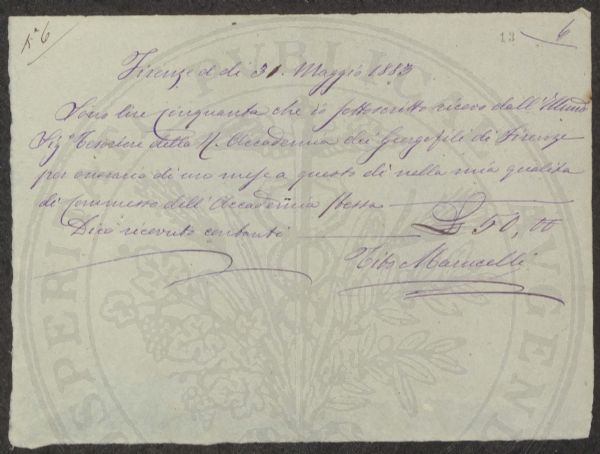 N° 6
13 6
Firenze a dì 31. Maggio 1883
Sono lire cinquanta che io sottoscritto ricevo dall'Illmo
Sig. Tesoriere della R. Accademia dei Georgofili di Firenze
per onorario di un mese a questo dì nella mia qualità
di Commesso dell'Accademia stessa
£ 50,00
Dico ricevuto contanti
Tito Marucelli
PROSPERITATI PUBLICAE AUGENDAE